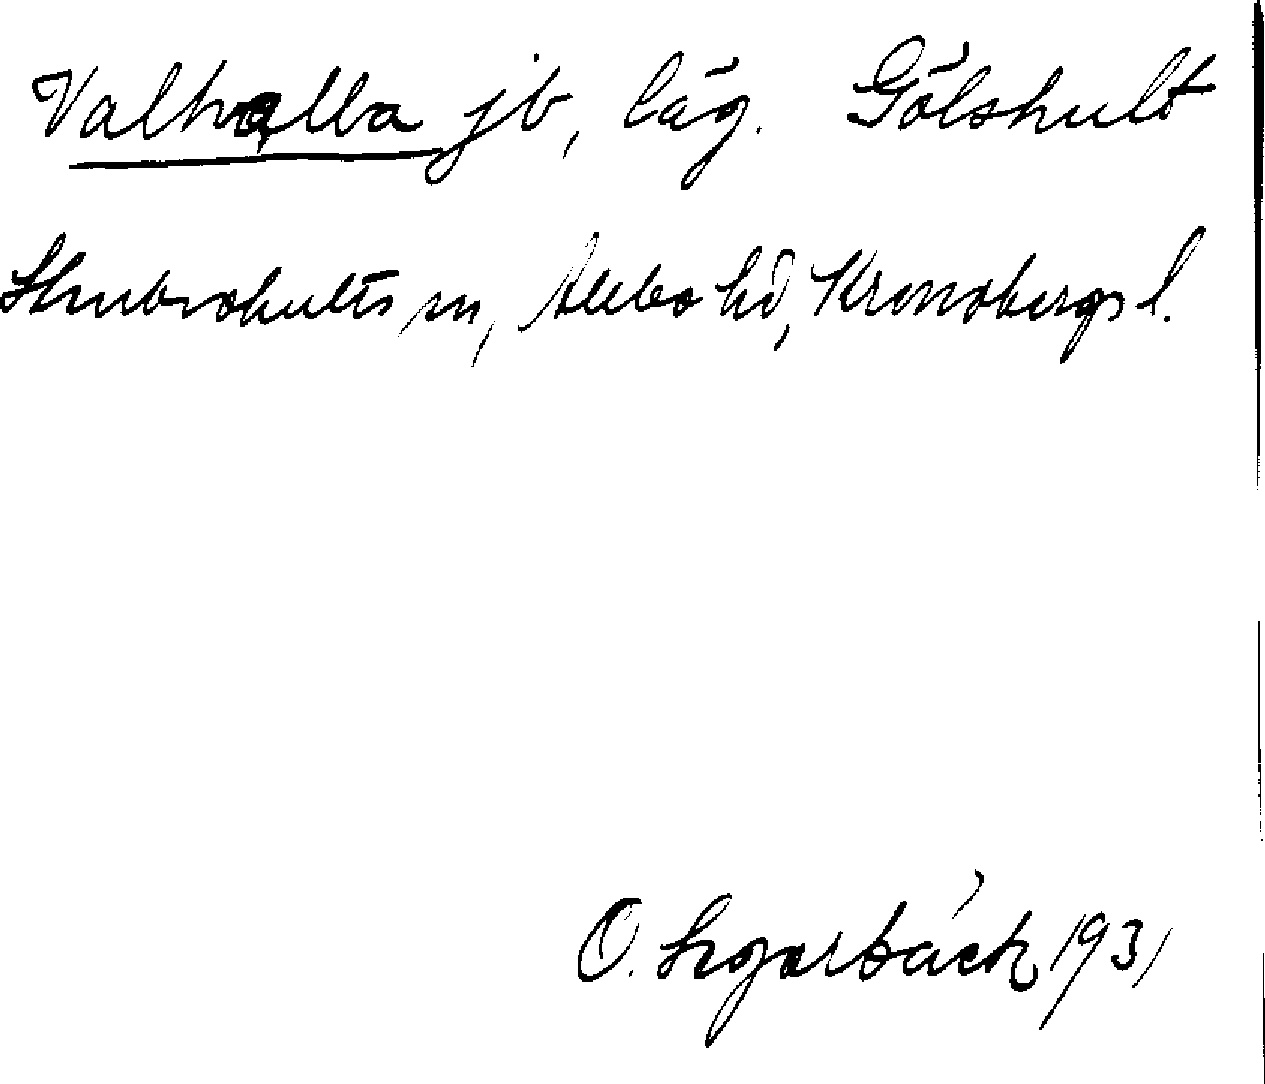 Valhalla jb, läg. Gölshult
Stenbrohults sn, Allbo hd, Kronobergs l.
O. Lgarbäck 1931